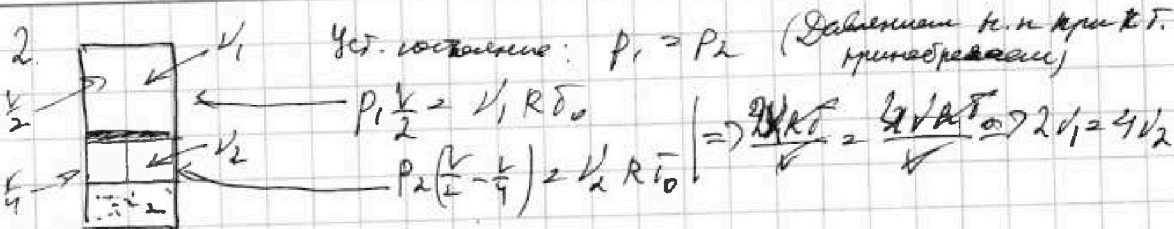 2. ν₁ Уст. состояние: p₁ = p₂ (Давлением н.п при к.т. принебрегаем)
V/2 p₁ V/2 = ν₁ R T₀
ν₂ p₂ (V/2 - V/4) = ν₂ R T₀ | => = => 2ν₁ = 4ν₂
V/4